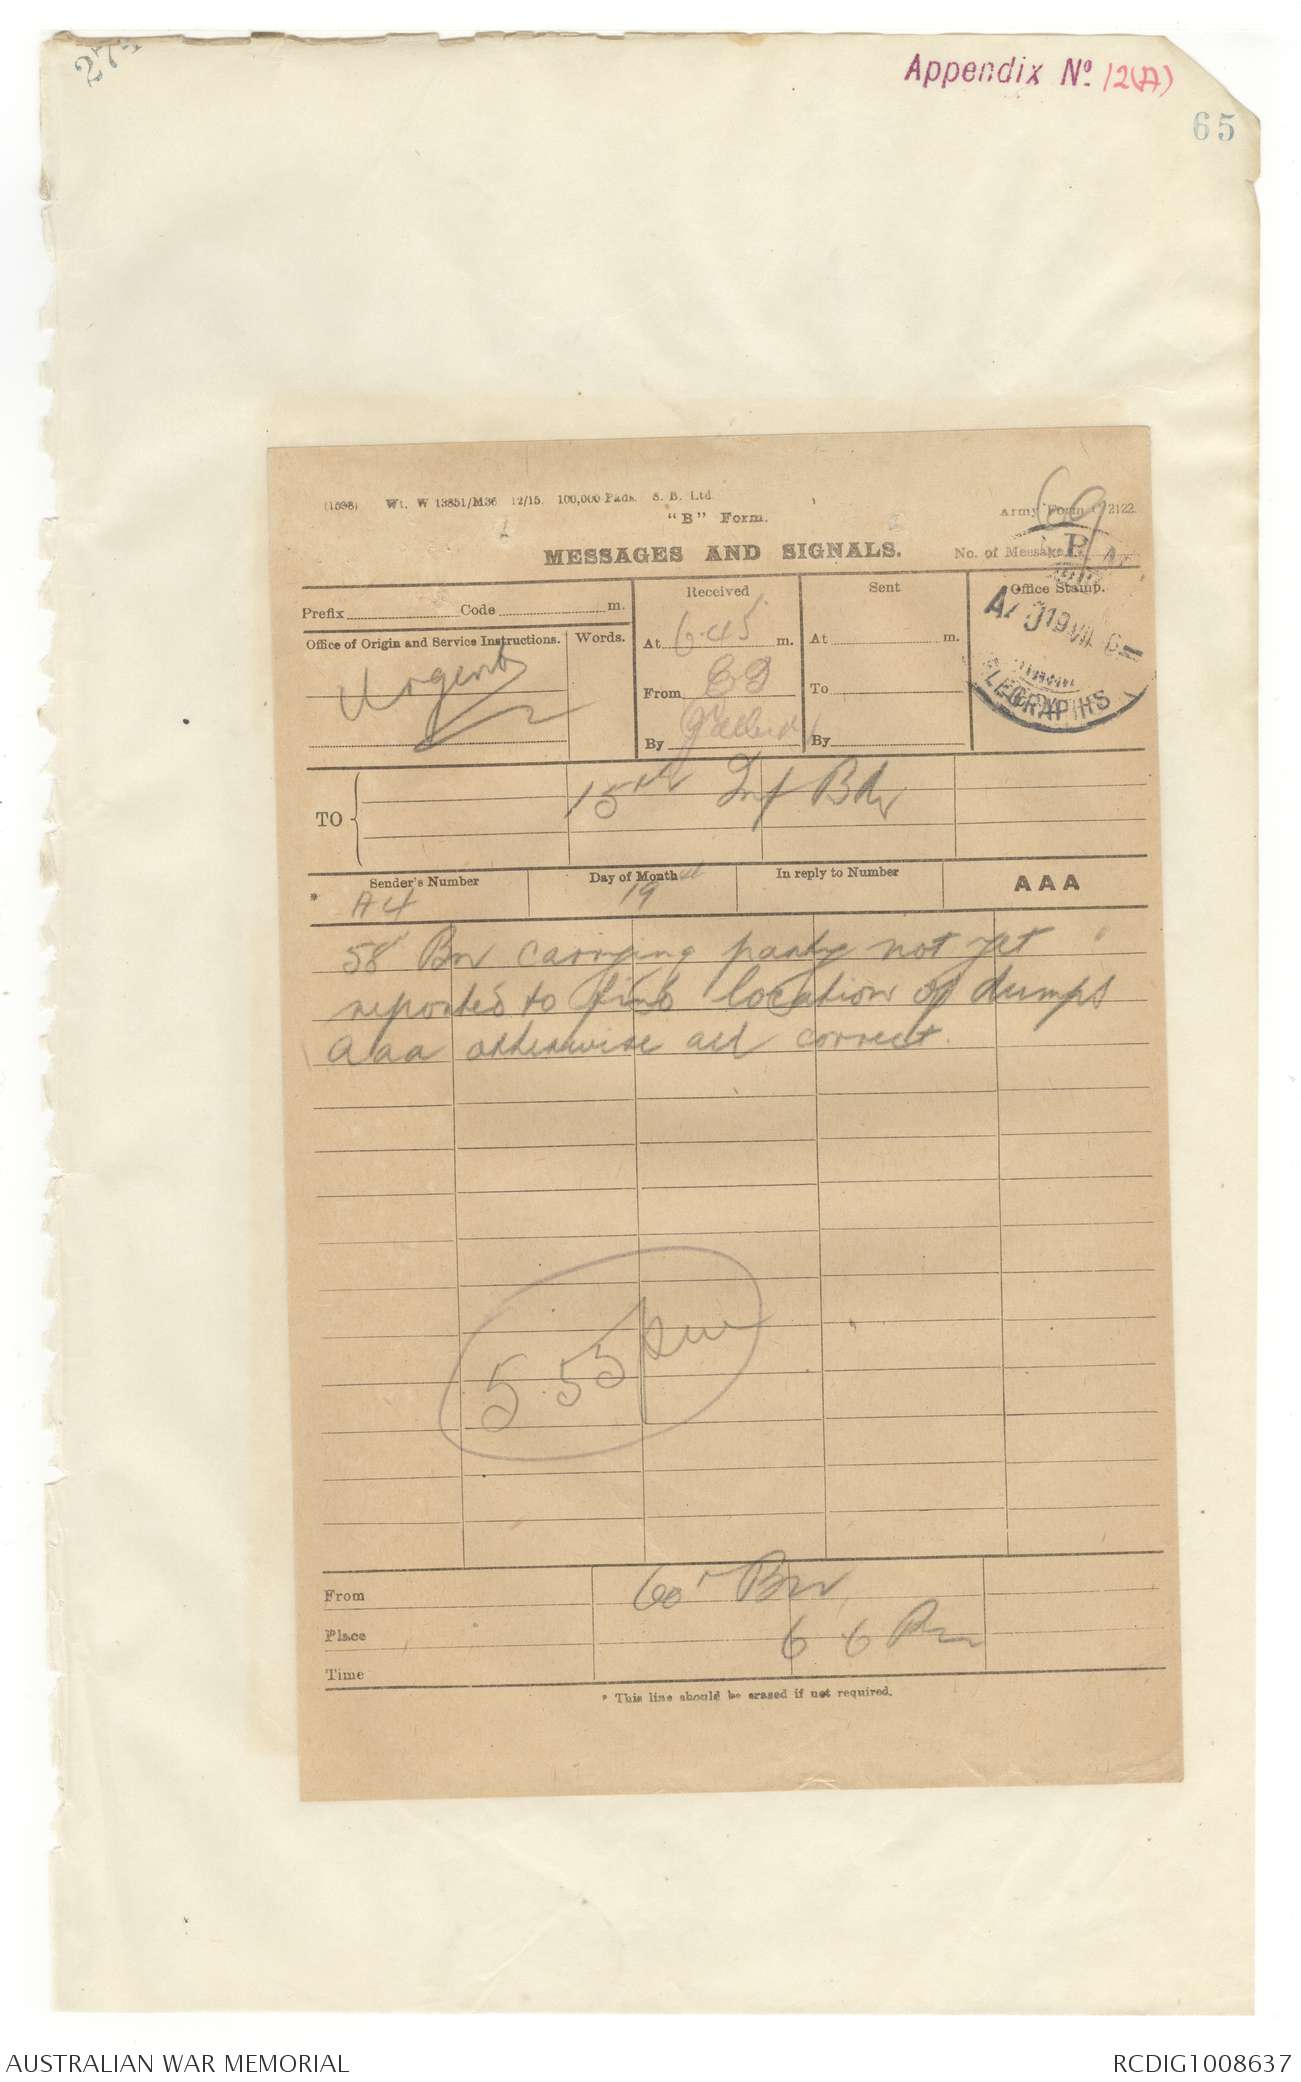 Appendix No 12(A)
65
(1598) Wt. W 13851/M36 12/15. 100,000 Pads. S. B. Ltd.
69
"B" Form.
Army Form C 2122.
MESSAGES AND SIGNALS.
No. of Message
Prefix Code m.
Received
Sent
Office Stamp.
Office of Origin and Service Instructions.
Words.
At 6.45 m.
At m.
19 VII
Urgent
From
To
TELEGRAPHS
By
By
TO
15th Inf Bde
Sender's Number
Day of Month
In reply to Number
AAA
* A4
19
58 Bn carrying party not yet
reported to find location of dumps
aaa otherwise all correct.
5.55 pm
From
60 Bn
Place
6 6 Pm
Time
* This line should be erased if not required.
AUSTRALIAN WAR MEMORIAL
RCDIG1008637